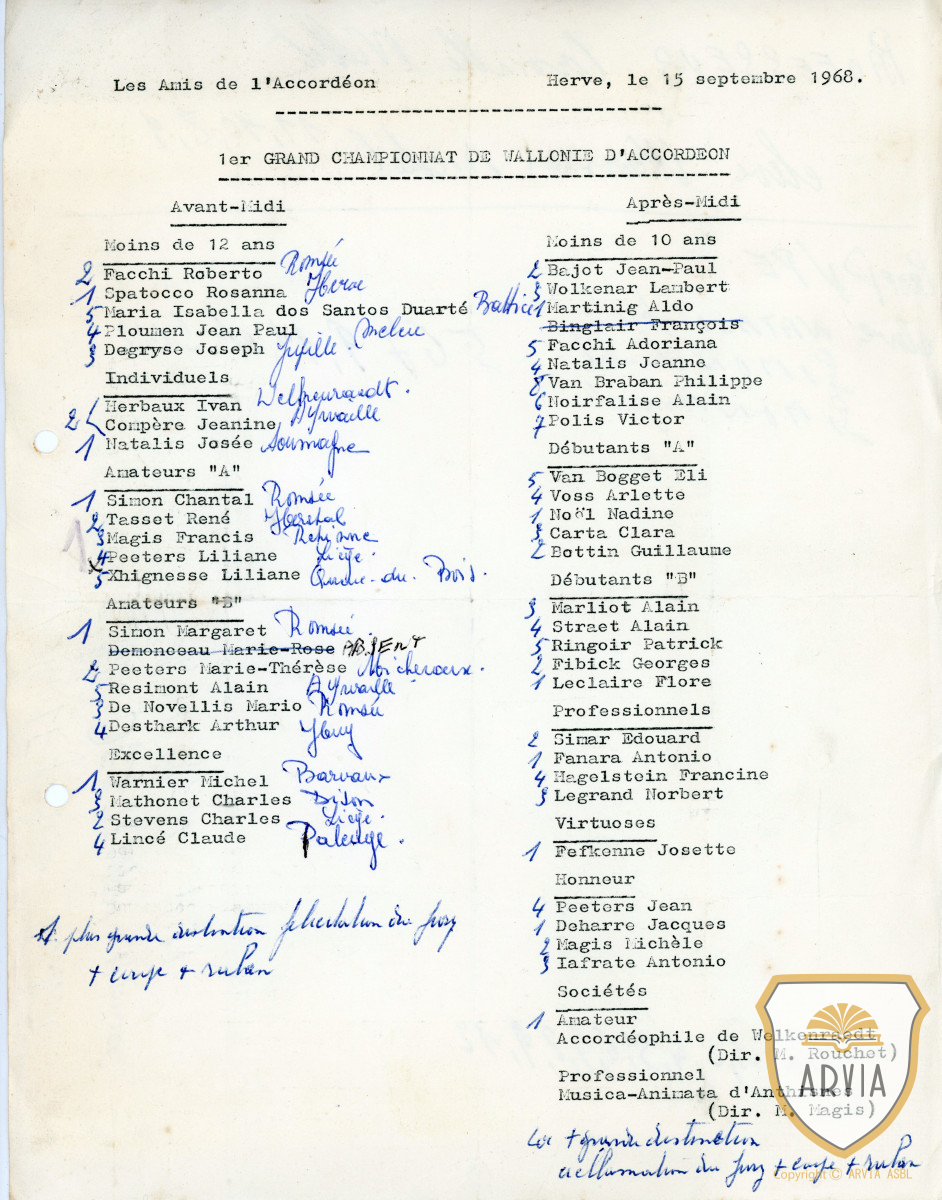 Les Amis de l'Accordéon Herve, le 15 septembre 1968.
1er GRAND CHAMPIONNAT DE WALLONIE D'ACCORDEON
Avant-Midi
Moins de 12 ans
2 Facchi Roberto Romsée
1 Spatocco Rosanna Herve
5 Maria Isabella dos Santos Duarté Battice
4 Ploumen Jean Paul Melen
3 Degryse Joseph Jupille
Individuels
Herbaux Ivan Welkenraedt.
2 Compère Jeanine Aywaille
1 Natalis Josée Soumagne
Amateurs "A"
1 Simon Chantal Romsée
2 Tasset René Herstal
3 Magis Francis
1 4 Peeters Liliane Liège.
5 Xhignesse Liliane Queue-du-Bois.
Amateurs "B"
1 Simon Margaret Romsée.
Demonceau Marie-Rose ABSENT
2 Peeters Marie-Thérèse Micheroux.
5 Resimont Alain Aywaille
3 De Novellis Mario Romsée
4 Desthark Arthur Huy
Excellence
1 Warnier Michel Barvaux
3 Mathonet Charles Dison
2 Stevens Charles Liège.
4 Lincé Claude
plus grande distinction félicitation du jury
+ coupe + ruban
Après-Midi
Moins de 10 ans
2 Bajot Jean-Paul
3 Wolkenar Lambert
1 Martinig Aldo
Binglair François
5 Facchi Adoriana
4 Natalis Jeanne
8 Van Braban Philippe
6 Noirfalise Alain
7 Polis Victor
Débutants "A"
5 Van Bogget Eli
4 Voss Arlette
1 Noël Nadine
3 Carta Clara
2 Bottin Guillaume
Débutants "B"
3 Marliot Alain
4 Straet Alain
5 Ringoir Patrick
2 Fibick Georges
1 Leclaire Flore
Professionnels
2 Simar Edouard
1 Fanara Antonio
4 Hagelstein Francine
3 Legrand Norbert
Virtuoses
1 Fefkenne Josette
Honneur
4 Peeters Jean
1 Deharre Jacques
2 Magis Michèle
3 Iafrate Antonio
Sociétés
1 Amateur
Accordéophile de Welkenraedt
(Dir. M. Rouchet)
Professionnel
Musica-Animata d'Anthisnes
(Dir. M. Magis)
La + grande distinction
acclamation du jury + coupe + ruban
ARVIA
Copyright © ARVIA ASBL